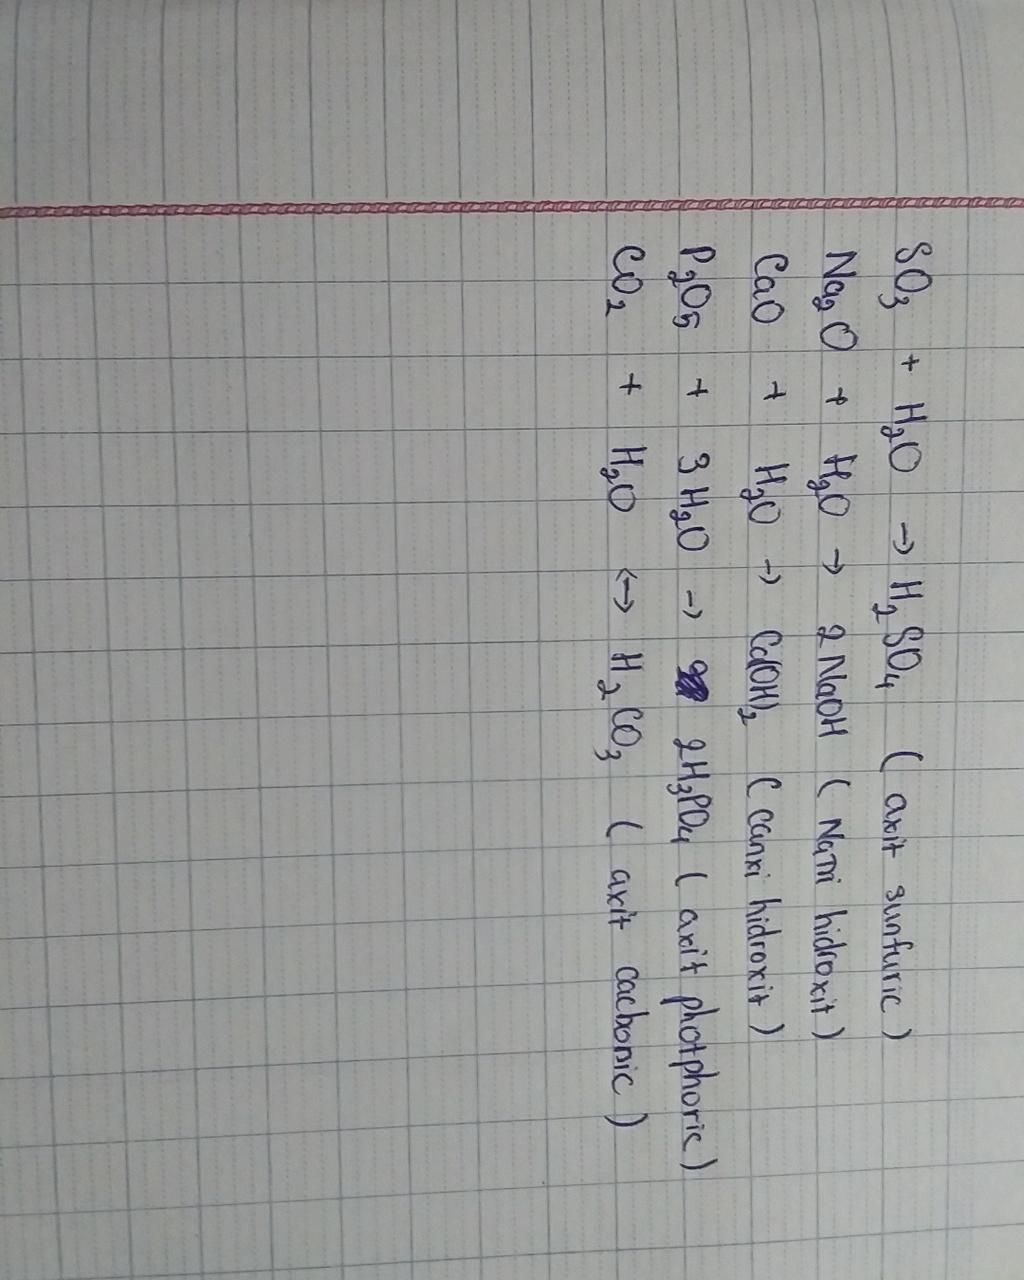 SO₃ + H₂O → H₂SO₄ ( axit sunfuric )
Na₂O + H₂O → 2 NaOH ( Natri hidroxit )
CaO + H₂O → Ca(OH)₂ ( canxi hidroxit )
P₂O₅ + 3 H₂O → 2H₃PO₄ ( axit photphoric )
CO₂ + H₂O ↔ H₂CO₃ ( axit cacbonic )